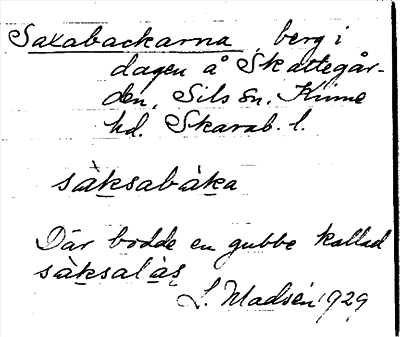 Saxabackarna, berg i
dagen å Skattegår-
den, Sils sn. Kinne
hd. Skarab. l.
sàksabàka
Där bodde en gubbe kallad
sàksalàs
L. Madsén 1929